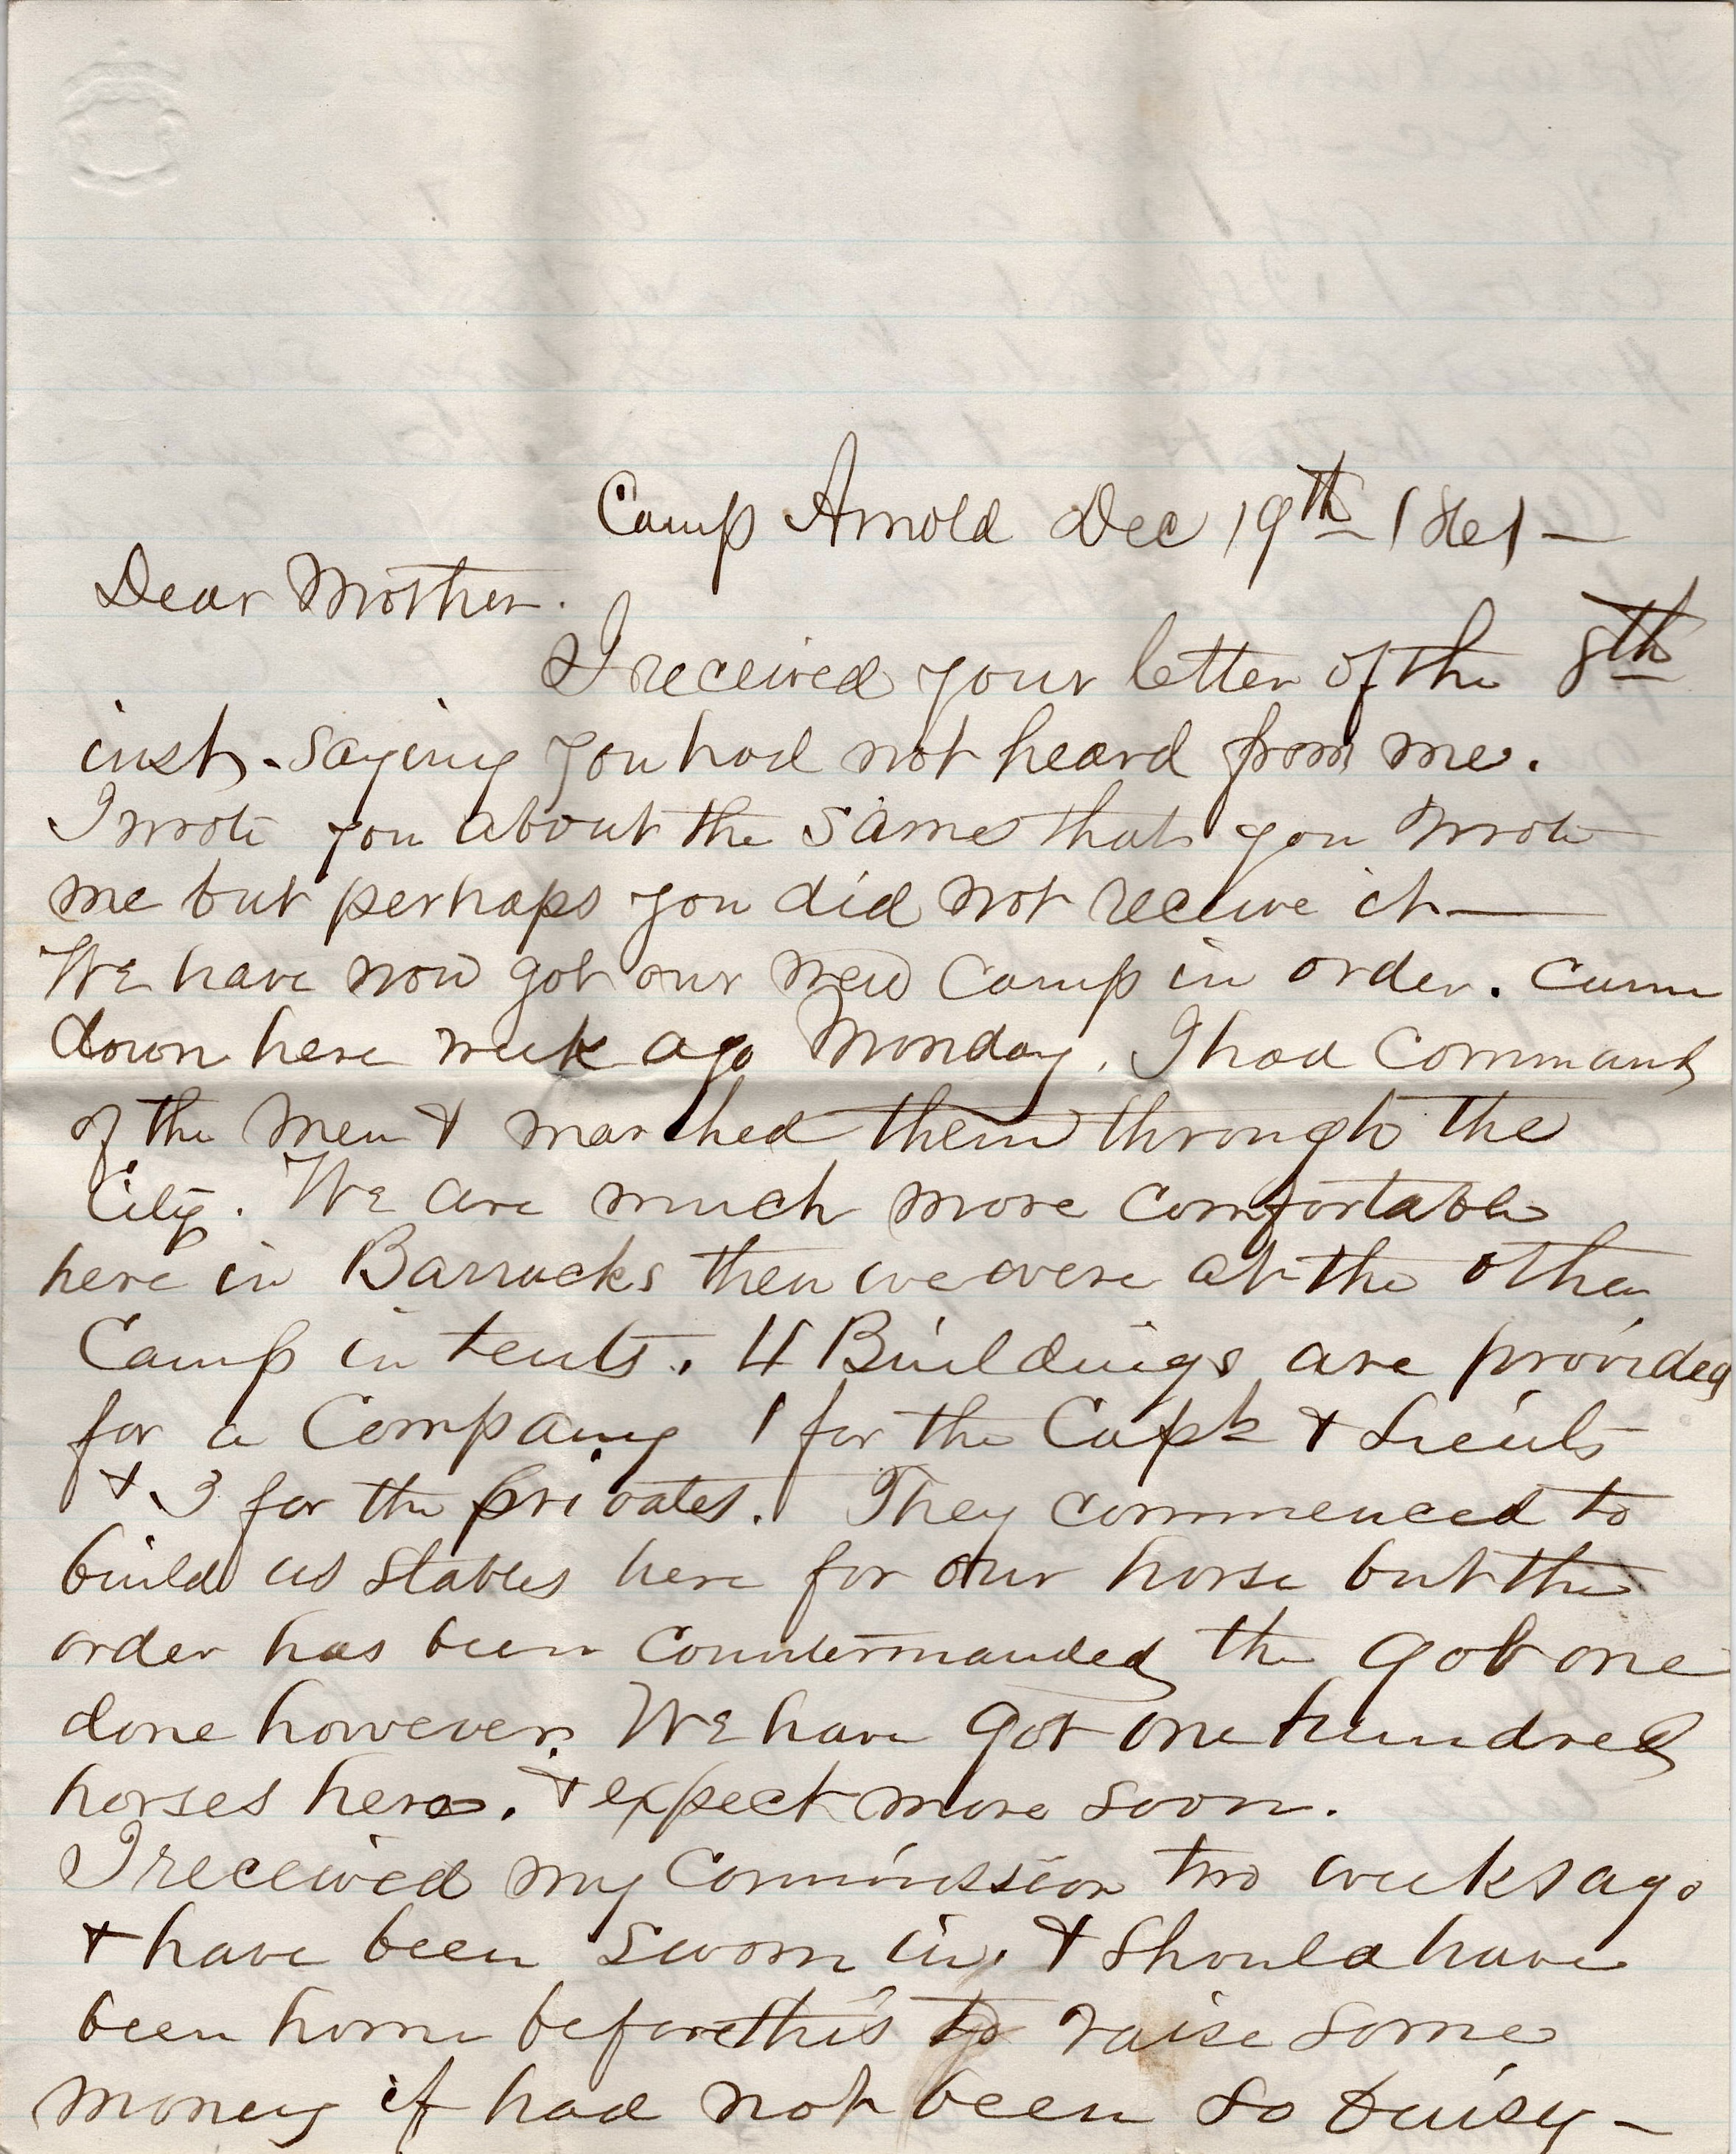 Camp Arnold Dec 19th 1861 —
Dear Mother.
I received your letter of the 8th
inst. saying you had not heard from me.
I wrote you about the same that you wrote
me but perhaps you did not receive it —
We have now got our new Camp in order. Came
down here week ago Monday. I had Command
of the men & marched them through the
City. We are much more comfortable
here in Barracks then we were at the other
Camp in tents. 4 Buildings are provided
for a Company 1 for the Capt & Lieuts
& 3 for the privates. They commenced to
build us stables here for our horse but the
order has been Countermanded the got one
done however. We have got one hundred
horses here. & expect more soon.
I received my Commission two weeks ago
& have been sworn in, & should have
been home before this to raise some
money if had not been so busy —